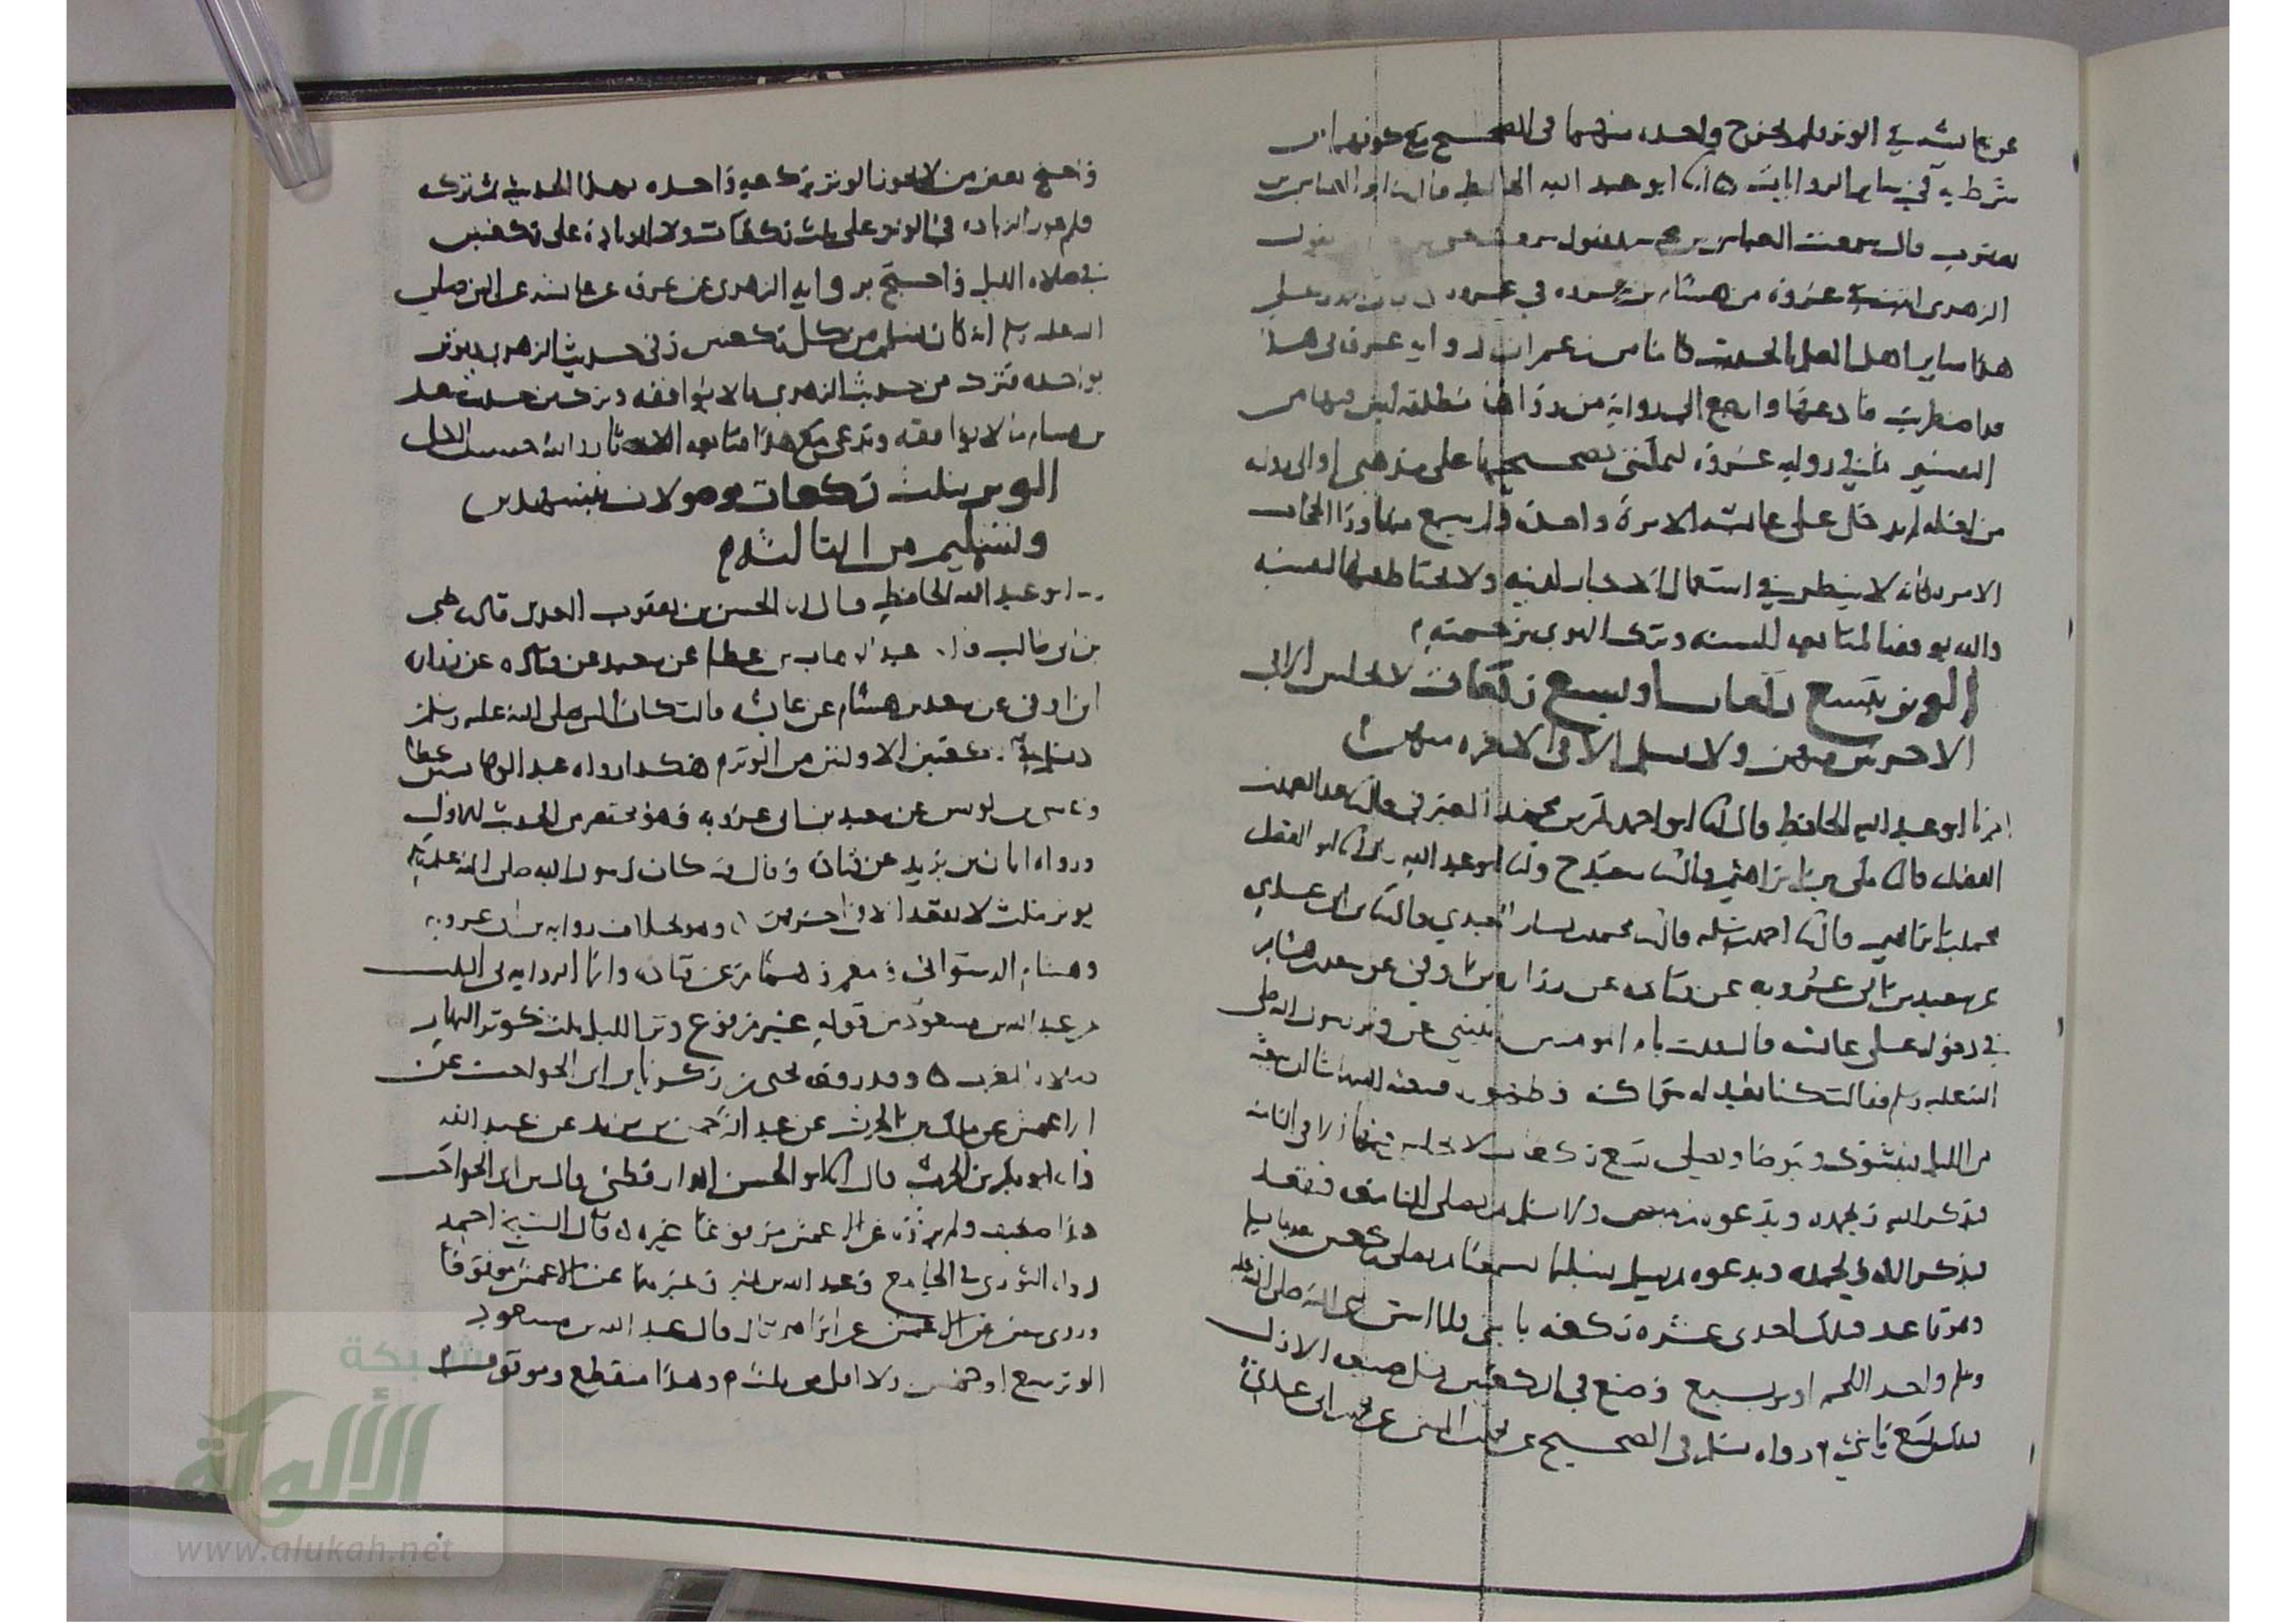 عن عائشة في الوتر فلم يخرج واحدة منهما في الصحيح مع كونهما من
شرطه في سائر الروايات ابو عبد الله الحافظ قال ابو العباس بن
يعقوب قال سمعت العباس بن محمد يقول سمعت يقول
الزهري اثبت في عروة من هشام بن عروة في عروة
هذا سائر اهل العلم بالحديث رواية عروة في هذا
قد اضطربت فادعها وارجع الى رواية من رواها مطلقة ليس فيها من
التفسير ما في رواية عروة ليمكنني تصحيحها على مذهبي
من لعله لم يدخل على عائشة الا مرة واحدة
الامر كانه لا ينظر في استعمال الاخبار لدينه ولا يحتاط فيها لنفسه
والله يوفقنا لمتابعة السنة وترك الهوى برحمته
الوتر بتسع ركعات او بسبع ركعات لا يجلس الا في
الاخرتين منهن ولا يسلم الا في الاخرة منهن
اخبرنا ابو عبد الله الحافظ قال ابو احمد بكر بن محمد الصيرفي قال عبد الصمد بن
الفضل قال مكي بن ابراهيم قال سعيد ح وانا ابو عبد الله قال ابو الفضل
محمد بن ابراهيم قال احمد بن سلمة قال محمد بن بشار العبدي قال بن ابي عدي
عن سعيد بن ابي عروبة عن قتادة عن زرارة بن اوفى عن سعد بن هشام
في دخوله على عائشة قال قلت يا ام المومنين نبئيني عن وتر رسول الله صلى
الله عليه وسلم فقالت كنا نعد له سواكه وطهوره فيبعثه الله ما شا ان يبعثه
من الليل فيتسوك ويتوضا ويصلي تسع ركعات لا يجلس فيها الا في الثامنة
فيذكر الله ويحمده ويدعوه ثم ينهض ولا يسلم ثم يصلي التاسعة فيقعد
فيذكر الله ويحمده ويدعوه ثم يسلم تسليما يسمعنا ثم يصلي ركعتين بعد ما يسلم
وهو قاعد فتلك احدى عشرة ركعة يا بني فلما اسن نبي الله صلى الله عليه
وسلم واخذ اللحم اوتر بسبع وصنع في الركعتين مثل صنيعه الاول
فتلك تسع يا بني رواه مسلم في الصحيح عن محمد بن المثنى عن بن ابي عدي
واحتج بعض من لا يجوز الوتر بركعة واحدة بهذا الحديث ثم تركه
فلم يجوز الزيادة في الوتر على ثلث ركعات ولا الزيادة على ركعتين
في صلاة الليل واحتج برواية الزهري عن عروة عن عائشة عن النبي صلى
الله عليه وسلم انه كان يسلم من كل ركعتين وفي حديث الزهري ويوتر
بواحدة فترك من حديث الزهري ما لا يوافقه وترك من حديث سعد
بن هشام ما لا يوافقه ويدعي مع هذا متابعة الاثار والله حسيب
الوتر بثلث ركعات موصولات بتشهدين
وتسليم من الثالثة
ابو عبد الله الحافظ قال الحسن بن يعقوب العدل قال يحيى
بن ابي طالب قال عبد الوهاب بن عطا عن سعيد عن قتادة عن زرارة
ابن اوفى عن سعد بن هشام عن عائشة قالت كان النبي صلى الله عليه وسلم
في الركعتين الاولتين من الوتر هكذا رواه عبد الوهاب بن عطا
وعيسى بن يونس عن سعيد بن ابي عروبة وهو مختصر من الحديث الاول
ورواه ابان بن يزيد عن قتادة وقال فيه كان رسول الله صلى الله عليه وسلم
يوتر بثلث لا يقعد الا في اخرهن وهو بخلاف رواية بن ابي عروبة
وهشام الدستوائي ومعمر وهمام عن قتادة وانما الرواية في الثلث
عن عبد الله بن مسعود من قوله غير مرفوع وتر الليل ثلث كوتر النهار
صلاة المغرب وقد رفعه يحيى بن زكريا بن ابي الحواجب عن
الاعمش عن مالك بن الحرث عن عبد الرحمن بن يزيد عن عبد الله
ابو بكر بن الحرث قال ابو الحسن الدارقطني قال بن ابي الحواجب
هذا ضعيف ولم يروه عن الاعمش مرفوعا غيره قال الشيخ احمد
رواه الثوري في الجامع وعبد الله بن نمير وغيرهما عن الاعمش موقوفا
وروي عن الاعمش عن ابراهيم قال قال عبد الله بن مسعود
الوتر سبع او خمس ولا اقل من ثلث وهذا منقطع وموقوف
شبكة
الألوكة
www.alukah.net